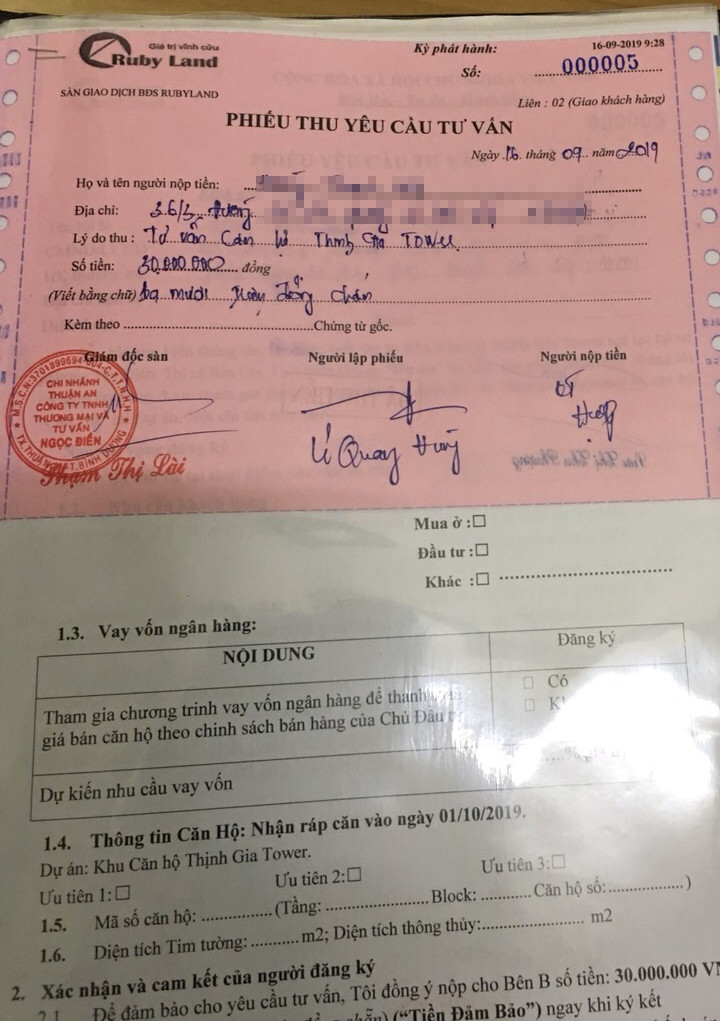 Giá trị vĩnh cửu
Ruby Land
SÀN GIAO DỊCH BĐS RUBYLAND
Kỳ phát hành: 16-09-2019 9:28
Số: 000005
Liên : 02 (Giao khách hàng)
PHIẾU THU YÊU CẦU TƯ VẤN
Ngày 16 tháng 09 năm 2019
Họ và tên người nộp tiền:
Địa chỉ: 36/3 đường
Lý do thu : Tư vấn Căn hộ Thịnh Gia Tower
Số tiền: 30.000.000 đồng
(Viết bằng chữ) Ba mươi triệu đồng chẵn
Kèm theo Chứng từ gốc.
Giám đốc sàn Người lập phiếu Người nộp tiền
CHI NHÁNH
THUẬN AN
CÔNG TY TNHH
THƯƠNG MẠI VÀ
TƯ VẤN
NGỌC ĐIỀN
Phạm Thị Lài
Mua ở :☐
Đầu tư :☐
Khác :☐
1.3. Vay vốn ngân hàng:
NỘI DUNG Đăng ký
Tham gia chương trinh vay vốn ngân hàng để thanh ☐ Có
giá bán căn hộ theo chinh sách bán hàng của Chủ Đầu ☐
Dự kiến nhu cầu vay vốn
1.4. Thông tin Căn Hộ: Nhận ráp căn vào ngày 01/10/2019.
Dự án: Khu Căn hộ Thịnh Gia Tower.
Ưu tiên 1:☐ Ưu tiên 2:☐ Ưu tiên 3:☐
1.5. Mã số căn hộ: (Tầng: Block: Căn hộ số: )
1.6. Diện tích Tim tường: m2; Diện tích thông thủy: m2
2. Xác nhận và cam kết của người đăng ký
2.1 Để đảm bảo cho yêu cầu tư vấn, Tôi đồng ý nộp cho Bên B số tiền: 30.000.000
("Tiền Đảm Bảo") ngay khi ký kết